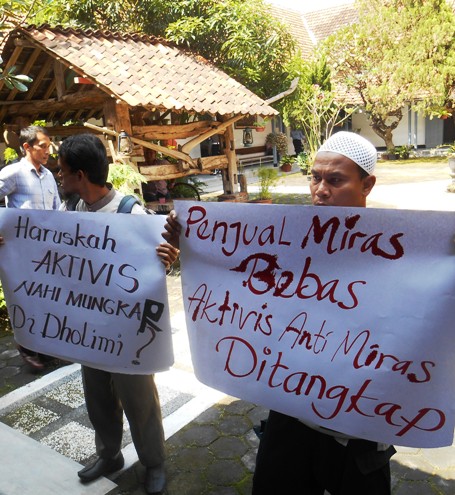 Haruskah
AKTIVIS
NAHI MUNGKAR
Di Dholimi ?
Penjual Miras
Bebas
Aktivis Anti Miras
Ditangkap